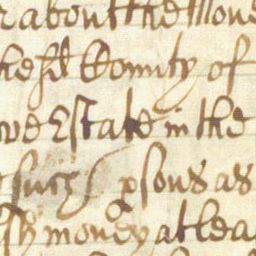 about the Mone
he sd County of
Estate in the
such psons as
money at lea